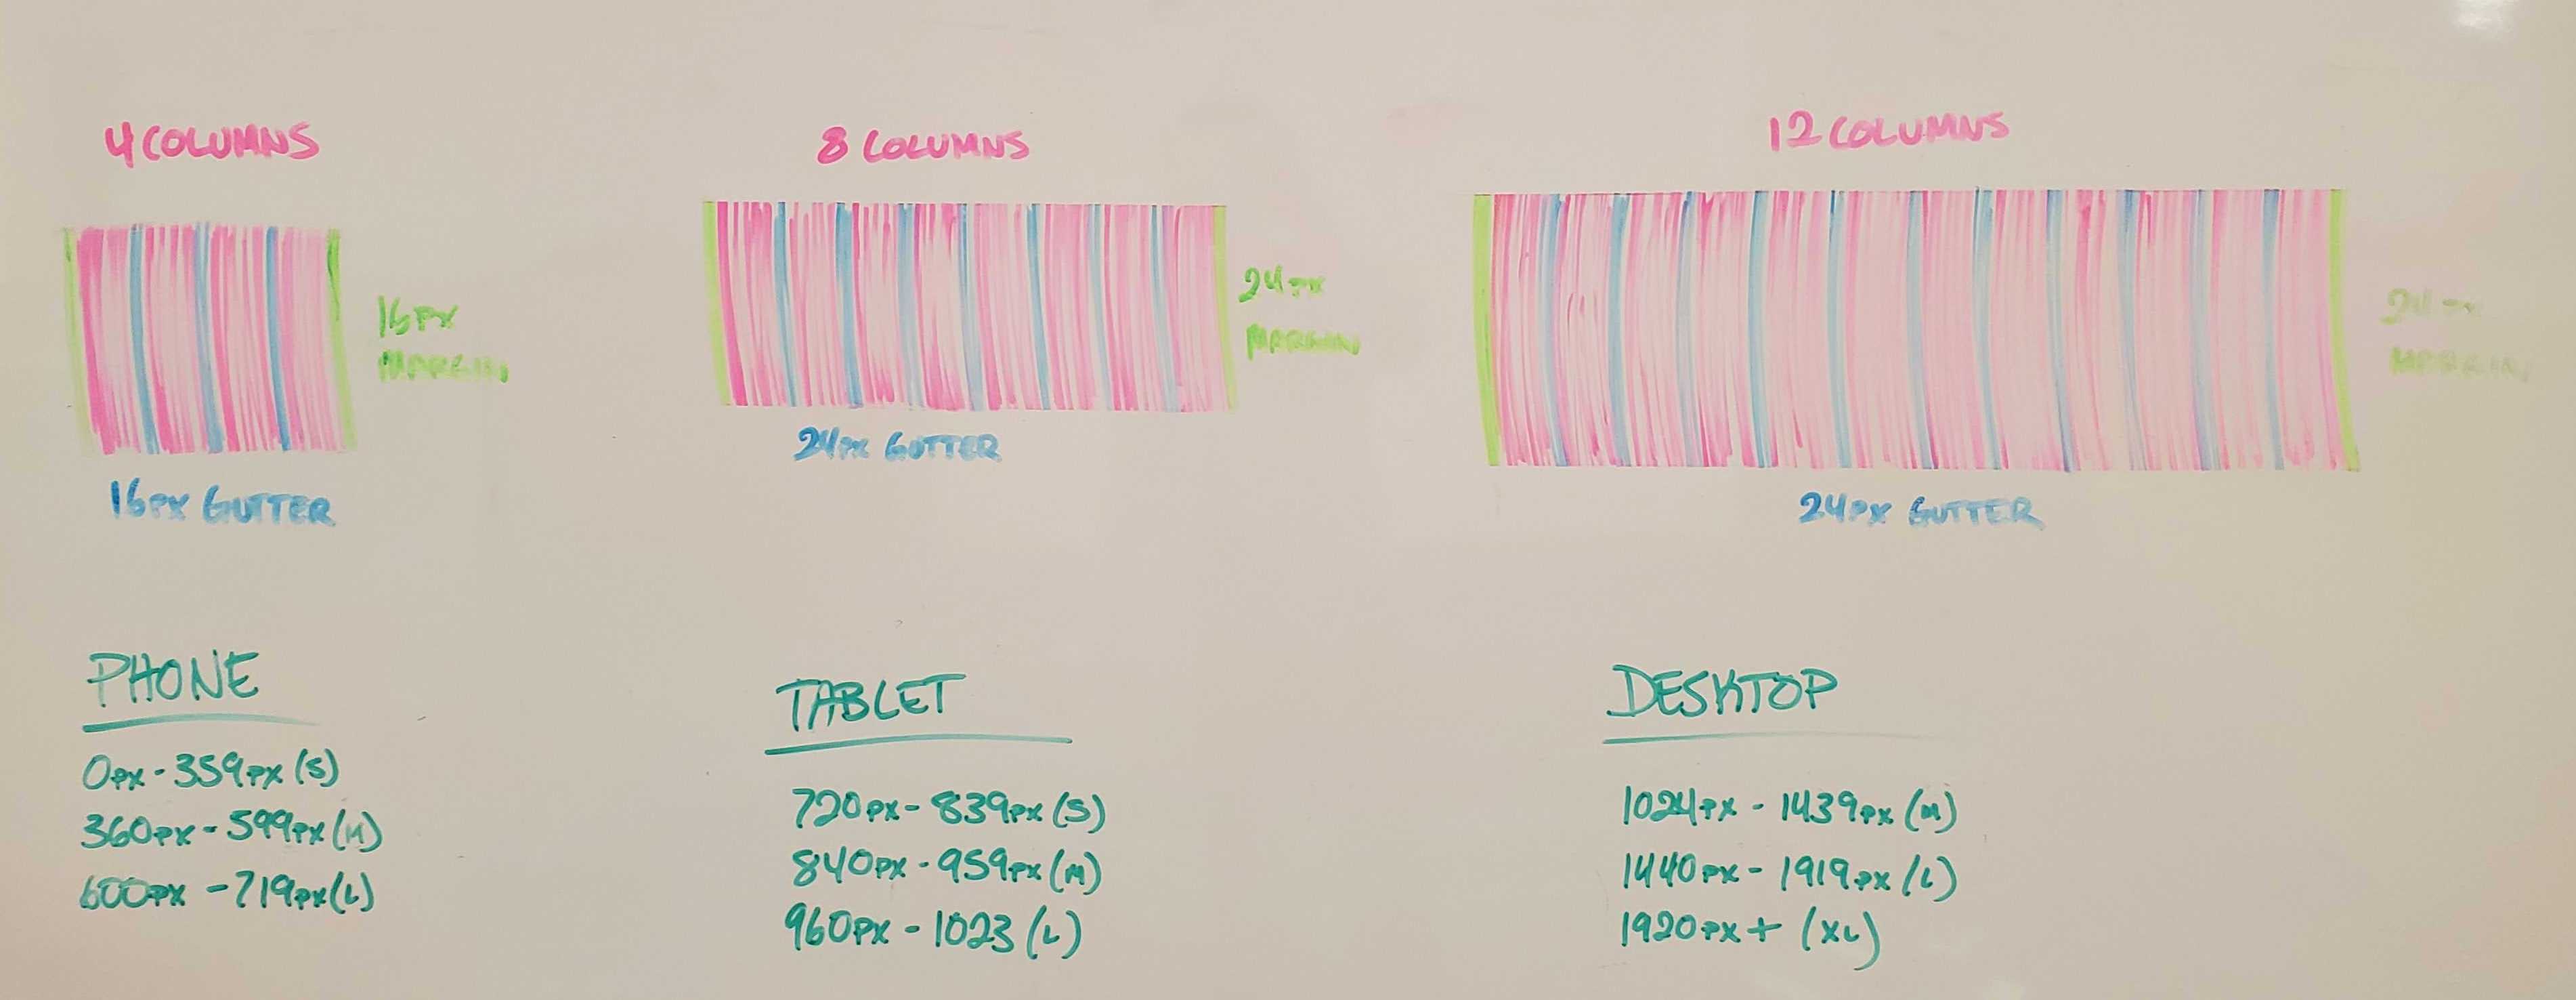 4 COLUMNS
16PX
MARGIN
16PX GUTTER
8 COLUMNS
24PX
MARGIN
24PX GUTTER
12 COLUMNS
24PX
MARGIN
24PX GUTTER
PHONE
0PX - 359PX (S)
360PX - 599PX (M)
600PX - 719PX (L)
TABLET
720PX - 839PX (S)
840PX - 959PX (M)
960PX - 1023 (L)
DESKTOP
1024PX - 1439PX (M)
1440PX - 1919PX (L)
1920PX + (XL)